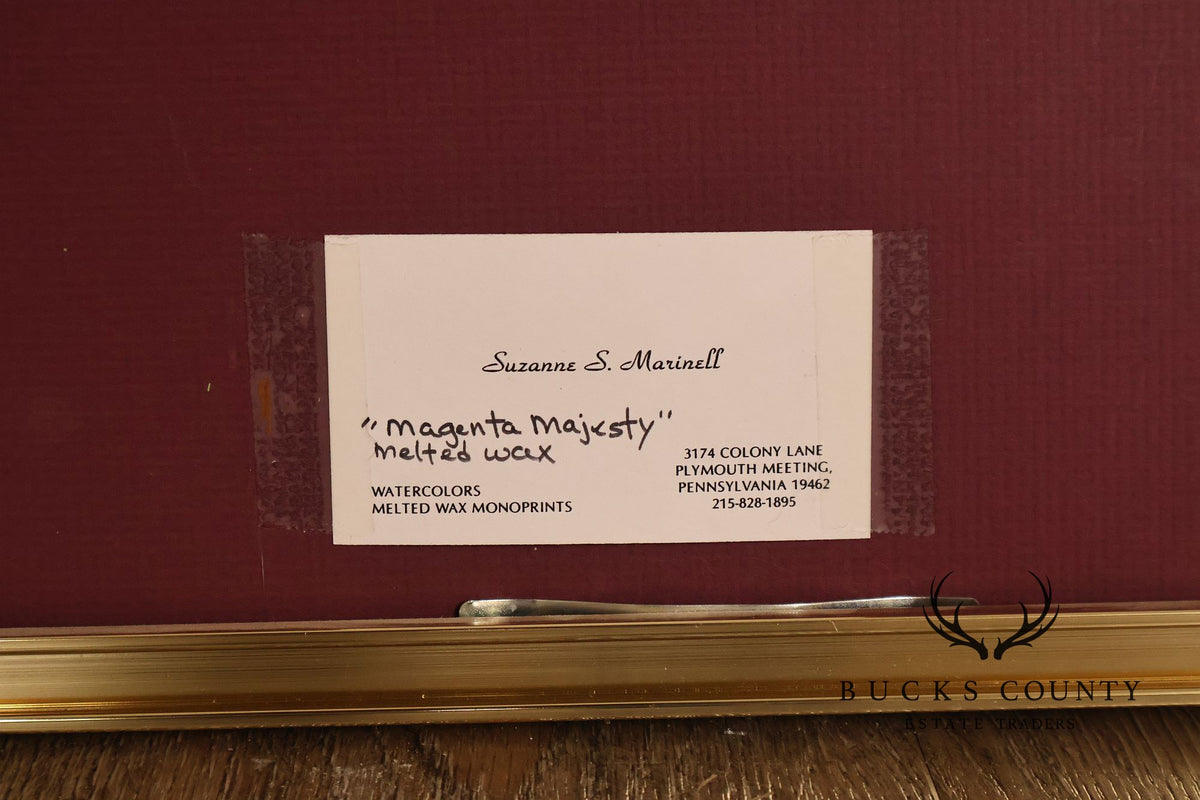 Suzanne S. Marinell
"Magenta Majesty"
Melted wax
WATERCOLORS
MELTED WAX MONOPRINTS
3174 COLONY LANE
PLYMOUTH MEETING,
PENNSYLVANIA 19462
215-828-1895
BUCKS COUNTY
ESTATE TRADERS